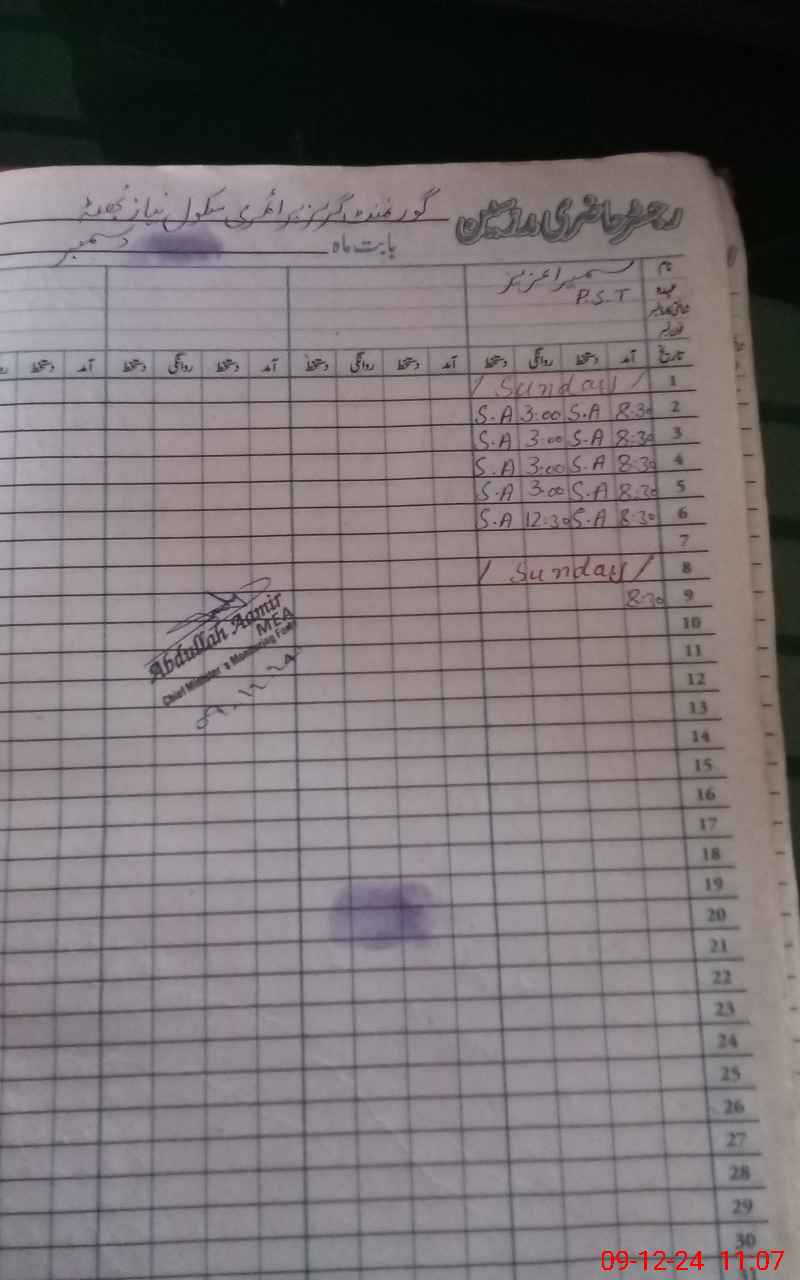 رجسٹر حاضری مدرسین گورنمنٹ گرلز پرائمری سکول نیاز بھٹہ
بابت ماہ دسمبر
نام سمیرا عزیز
عہدہ P.S.T
تاریخ آمد دستخط روانگی دستخط آمد دستخط روانگی دستخط آمد دستخط روانگی دستخط آمد دستخط
1 / Sunday /
2 8:30 S.A 3:00 S.A
3 8:30 S-A 3:00 S-A
4 8:30 S.A 3:00 S.A
5 8:30 S.A 3:00 S-A
6 8:30 S.A 12:30 S.A
7
8 / Sunday /
9 8:30
10
11
12
13
14
15
16
17
18
19
20
21
22
23
24
25
26
27
28
29
30
Abdullah Aamir
MEA
Chief Minister's Monitoring Force
09-12-24 11:07